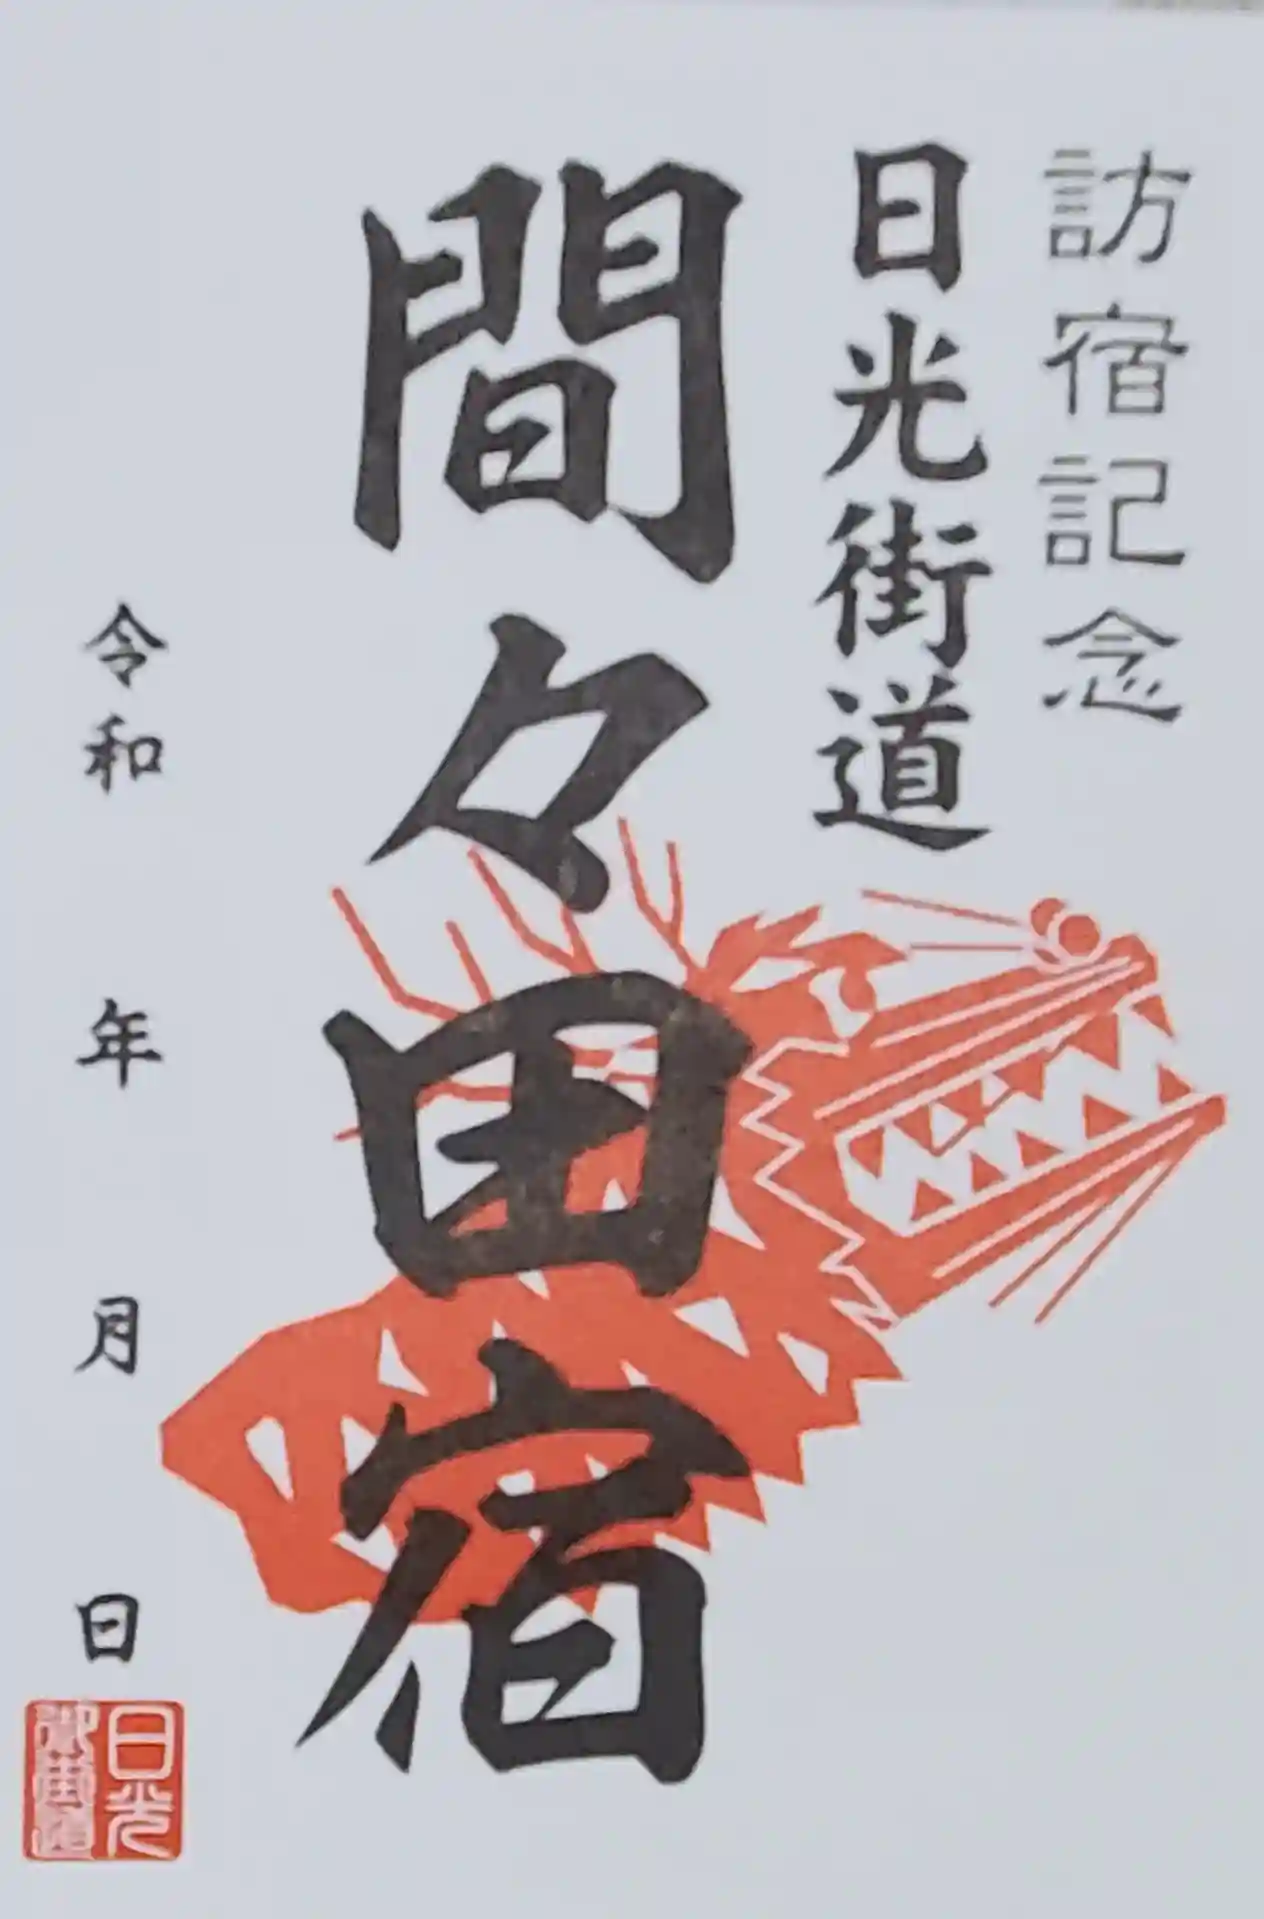 訪宿記念
日光街道
間々田宿
令和 年 月 日
日光
御街道